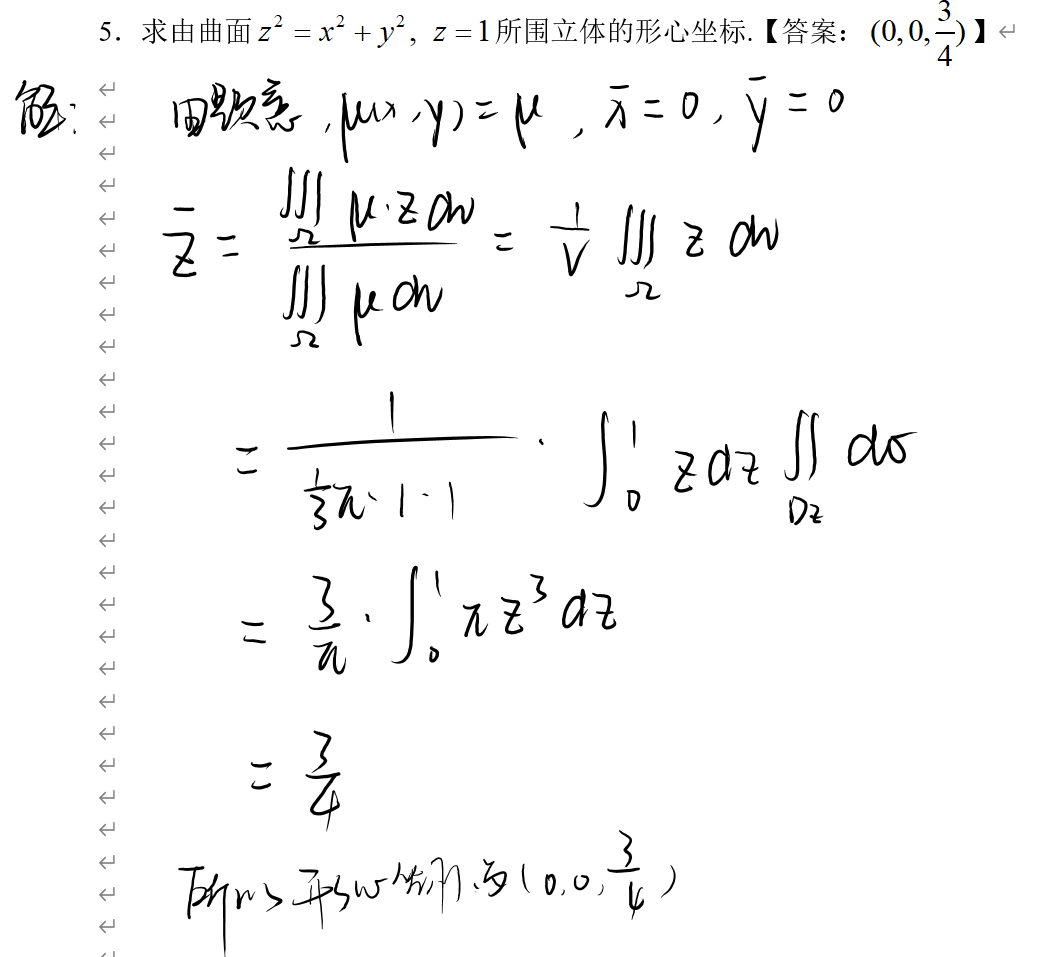 5. 求由曲面 z² = x² + y², z = 1 所围立体的形心坐标.【答案：(0,0,3/4)】
解: 由题意, μ(x,y) = μ, x̄ = 0, ȳ = 0
z̄ = ∭_Ω μ·z dv / ∭_Ω μ dv = 1/V ∭_Ω z dv
= 1/(1/3 π·1·1) · ∫₀¹ z dz ∬_Dz dσ
= 3/π · ∫₀¹ π z³ dz
= 3/4
所以形心坐标为(0,0,3/4)